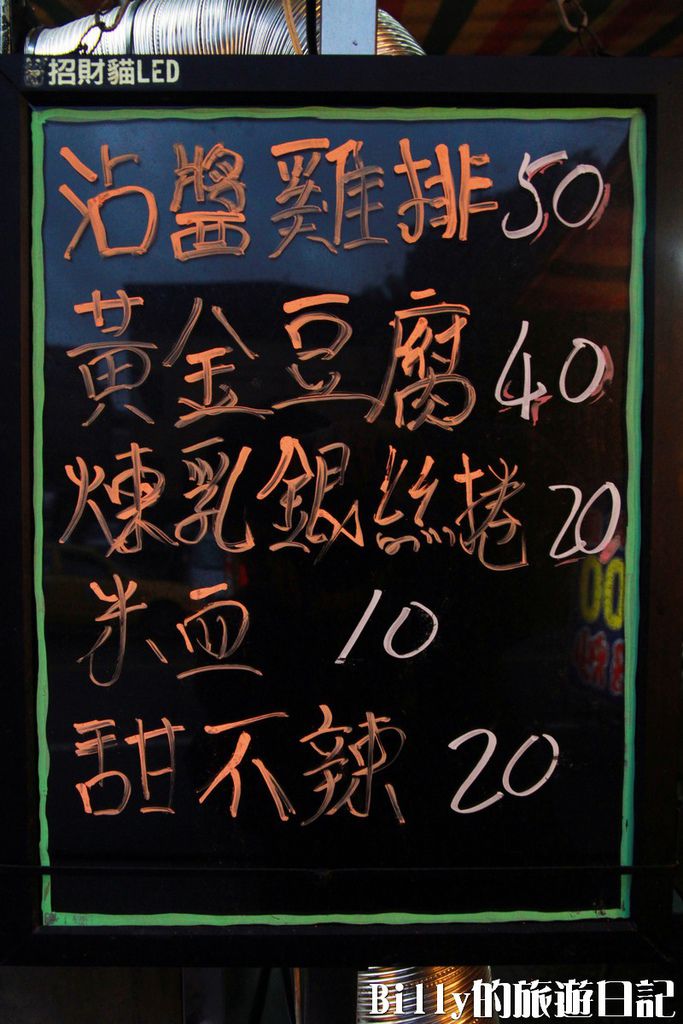 招財貓LED
沾醬雞排 50
黃金豆腐 40
煉乳銀絲捲 20
米血 10
甜不辣 20
00
Billy的旅遊日記